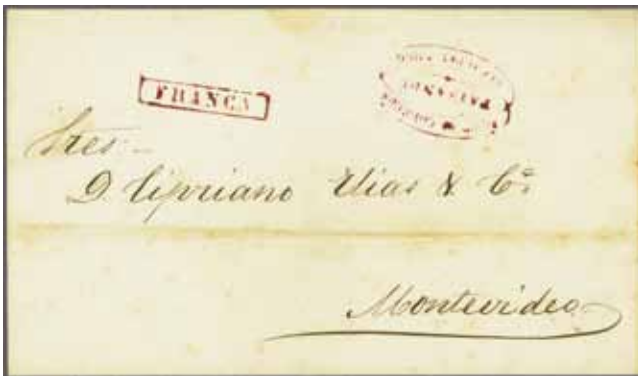 FRANCA
PAYSANDU
Sres.
D. Cipriano Elias & Cª
Montevideo